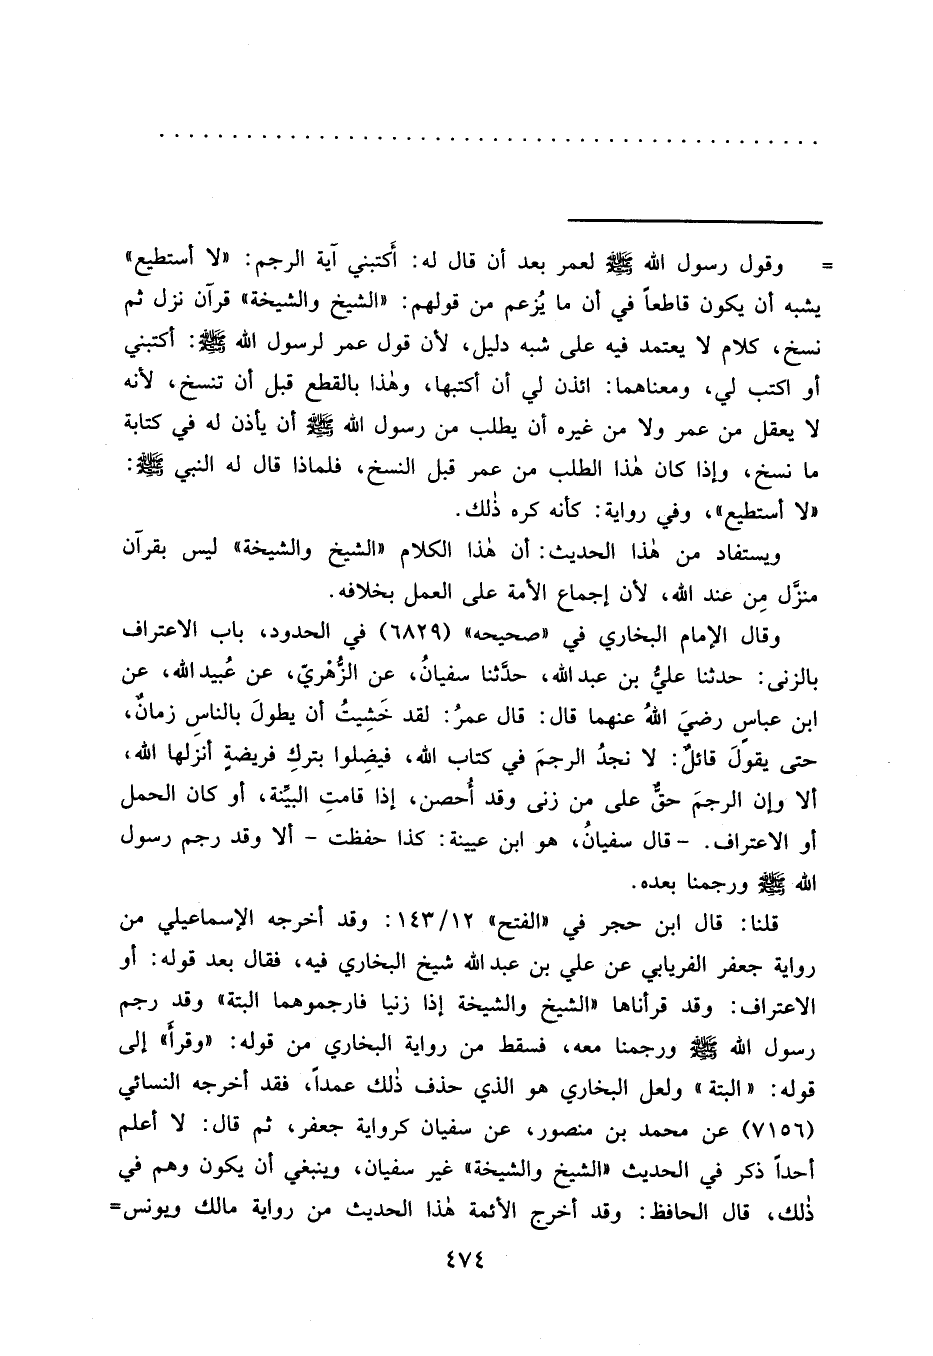 . . . . . . . . . . . . . . . . . . . . . . . . . . . . . . . . . . . . . . . . . . . . . .
= وقول رسول الله ﷺ لعمر بعد أن قال له: أَكتبني آية الرجم: «لا أستطيع»
يشبه أن يكون قاطعاً في أن ما يُزعم من قولهم: «الشيخ والشيخة» قرآن نزل ثم
نسخ، كلام لا يعتمد فيه على شبه دليل، لأن قول عمر لرسول الله ﷺ: أكتبني
أو اكتب لي، ومعناهما: ائذن لي أن أكتبها، وهٰذا بالقطع قبل أن تنسخ، لأنه
لا يعقل من عمر ولا من غيره أن يطلب من رسول الله ﷺ أن يأذن له في كتابة
ما نسخ، وإذا كان هٰذا الطلب من عمر قبل النسخ، فلماذا قال له النبي ﷺ:
«لا أستطيع»، وفي رواية: كأنه كره ذٰلك.
ويستفاد من هٰذا الحديث: أن هٰذا الكلام «الشيخ والشيخة» ليس بقرآن
منزَّل مِن عند الله، لأن إجماع الأمة على العمل بخلافه.
وقال الإمام البخاري في «صحيحه» (٦٨٢٩) في الحدود، باب الاعتراف
بالزنى: حدثنا عليُّ بن عبد الله، حدَّثنا سفيانُ، عن الزُّهْريّ، عن عُبيد الله، عن
ابن عباسٍ رضيَ اللهُ عنهما قال: قال عمرُ: لقد خَشِيتُ أن يطولَ بالناسِ زمانٌ،
حتى يقولَ قائلٌ: لا نجدُ الرجمَ في كتاب الله، فيضِلوا بتركِ فريضةٍ أنزلها الله،
ألا وإن الرجمَ حقٌّ على من زنى وقد أُحصن، إذا قامتِ البيِّنة، أو كان الحمل
أو الاعتراف. - قال سفيانُ، هو ابن عيينة: كذا حفظت - ألا وقد رجم رسول
الله ﷺ ورجمنا بعده.
قلنا: قال ابن حجر في «الفتح» ١٤٣/١٢: وقد أخرجه الإسماعيلي من
رواية جعفر الفريابي عن علي بن عبد الله شيخ البخاري فيه، فقال بعد قوله: أو
الاعتراف: وقد قرأناها «الشيخ والشيخة إذا زنيا فارجموهما البتة» وقد رجم
رسول الله ﷺ ورجمنا معه، فسقط من رواية البخاري من قوله: «وقرأ» إلى
قوله: «البتة» ولعل البخاري هو الذي حذف ذٰلك عمداً، فقد أخرجه النسائي
(٧١٥٦) عن محمد بن منصور، عن سفيان كرواية جعفر، ثم قال: لا أعلم
أحداً ذكر في الحديث «الشيخ والشيخة» غير سفيان، وينبغي أن يكون وهم في
ذٰلك، قال الحافظ: وقد أخرج الأئمة هٰذا الحديث من رواية مالك ويونس=
٤٧٤